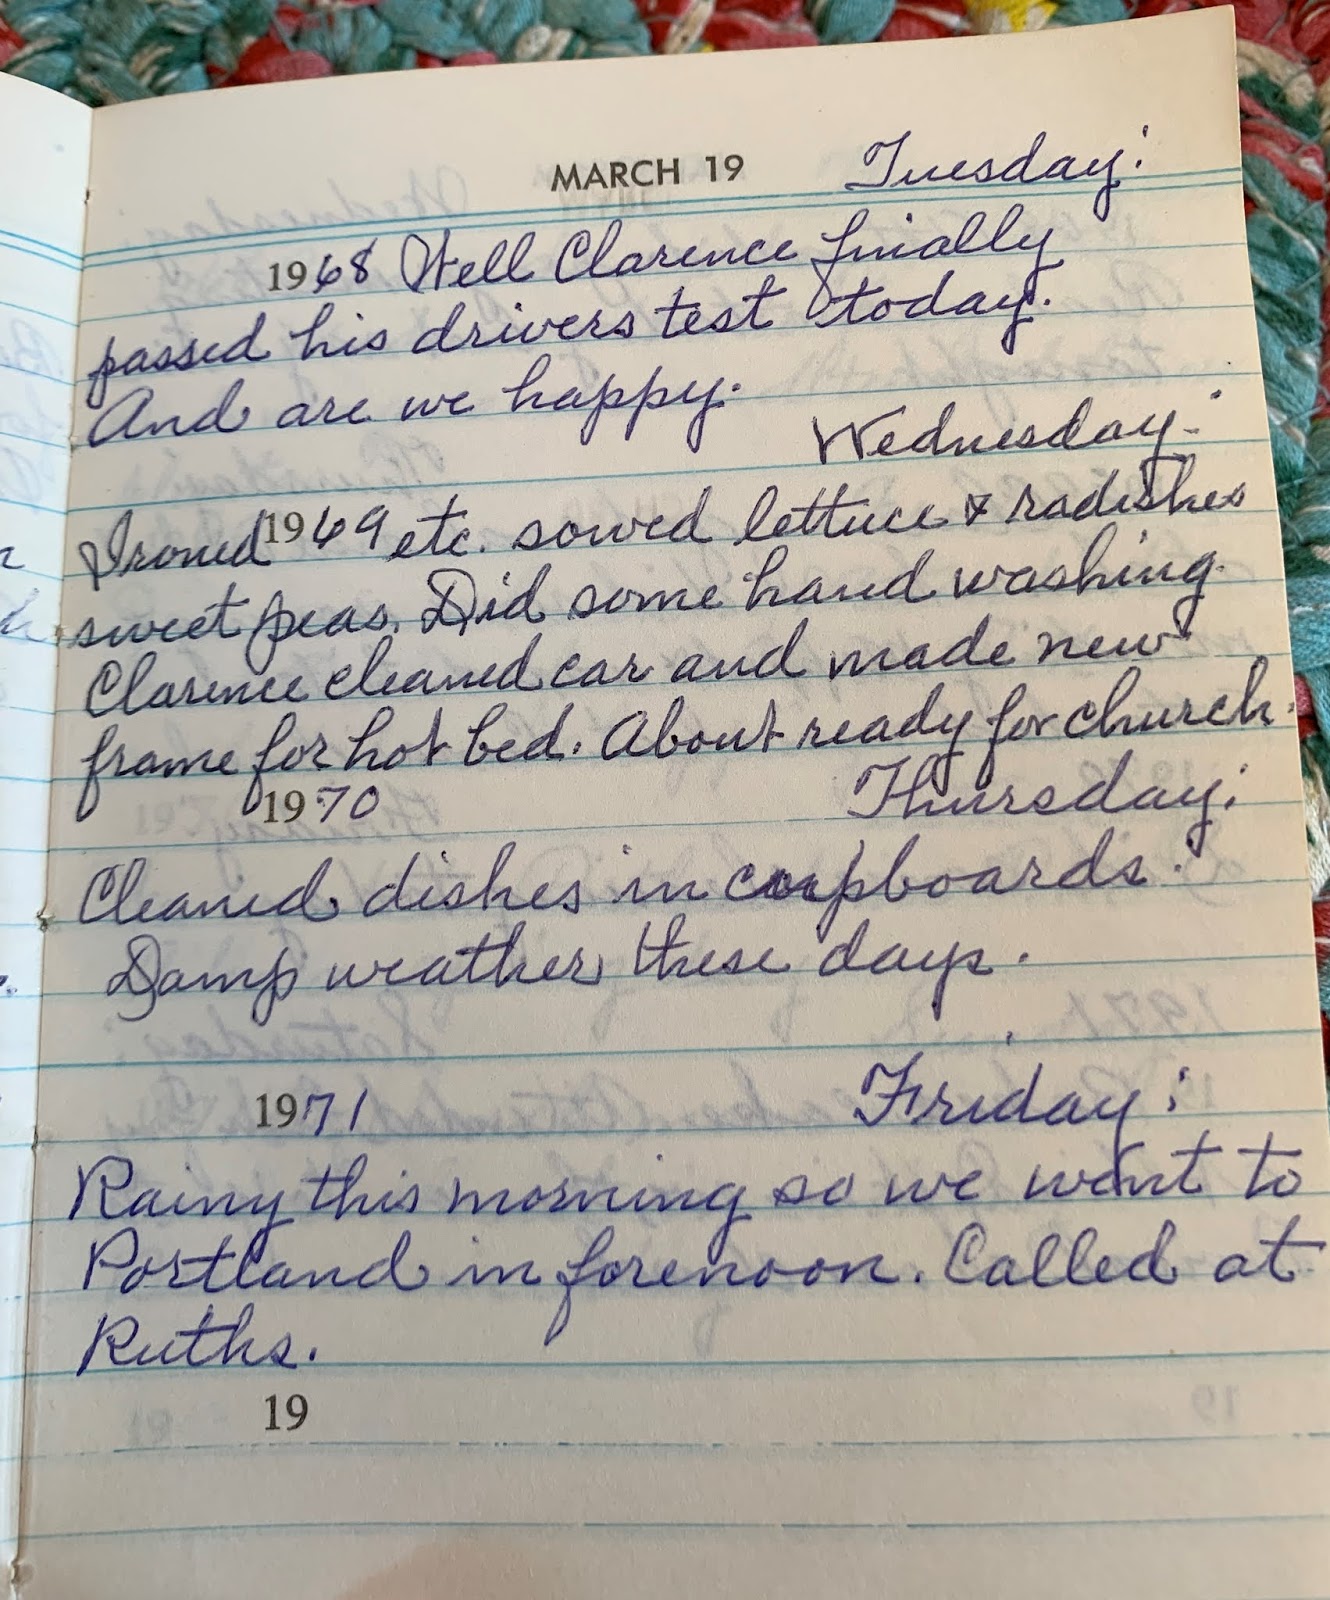 MARCH 19 Tuesday:
1968 Well Clarence finially
passed his drivers test today.
And are we happy.
Wednesday:
Ironed 1969 etc. sowed lettuce & radishes
sweet peas. Did some hand washing.
Clarence cleaned car and made new
frame for hot bed. About ready for church.
1970 Thursday:
Cleaned dishes in cupboards.
Damp weather these days.
1971 Friday:
Rainy this morning so we went to
Portland in forenoon. Called at
Ruths.
19